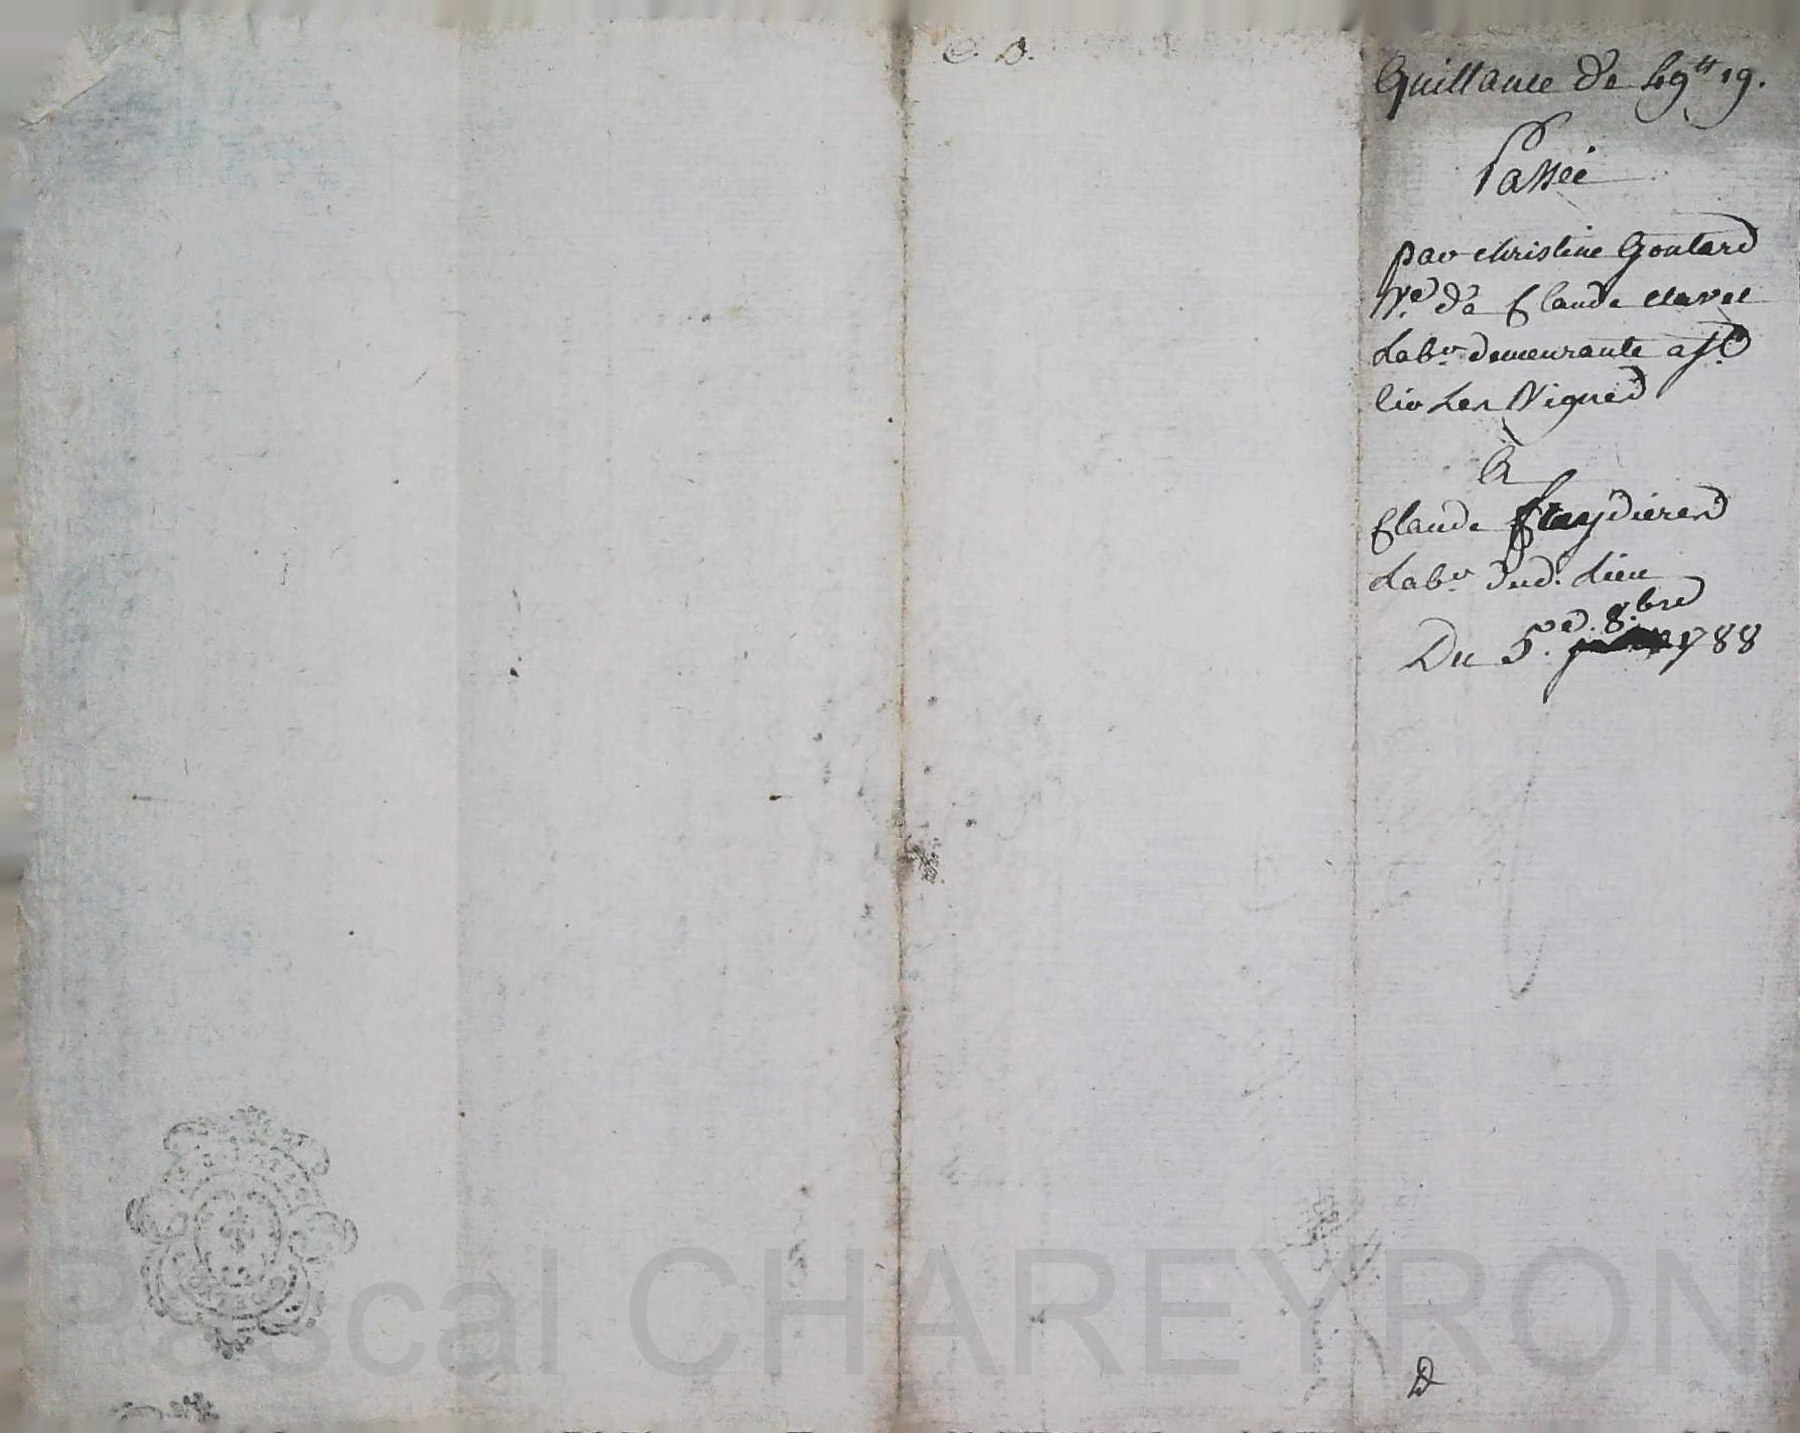 C. D.
Quittance de 49ᵗᵗ 19.
Passée
par christine Goutard
Vᵉ de Claude clavel
Labʳ demeurante a Sᵗ
cir Les Vignes
A
Claude Claydieres
Labʳ dud. Lieu
Du 5.ᵉ 8.bre 1788
D
Pascal CHAREYRON